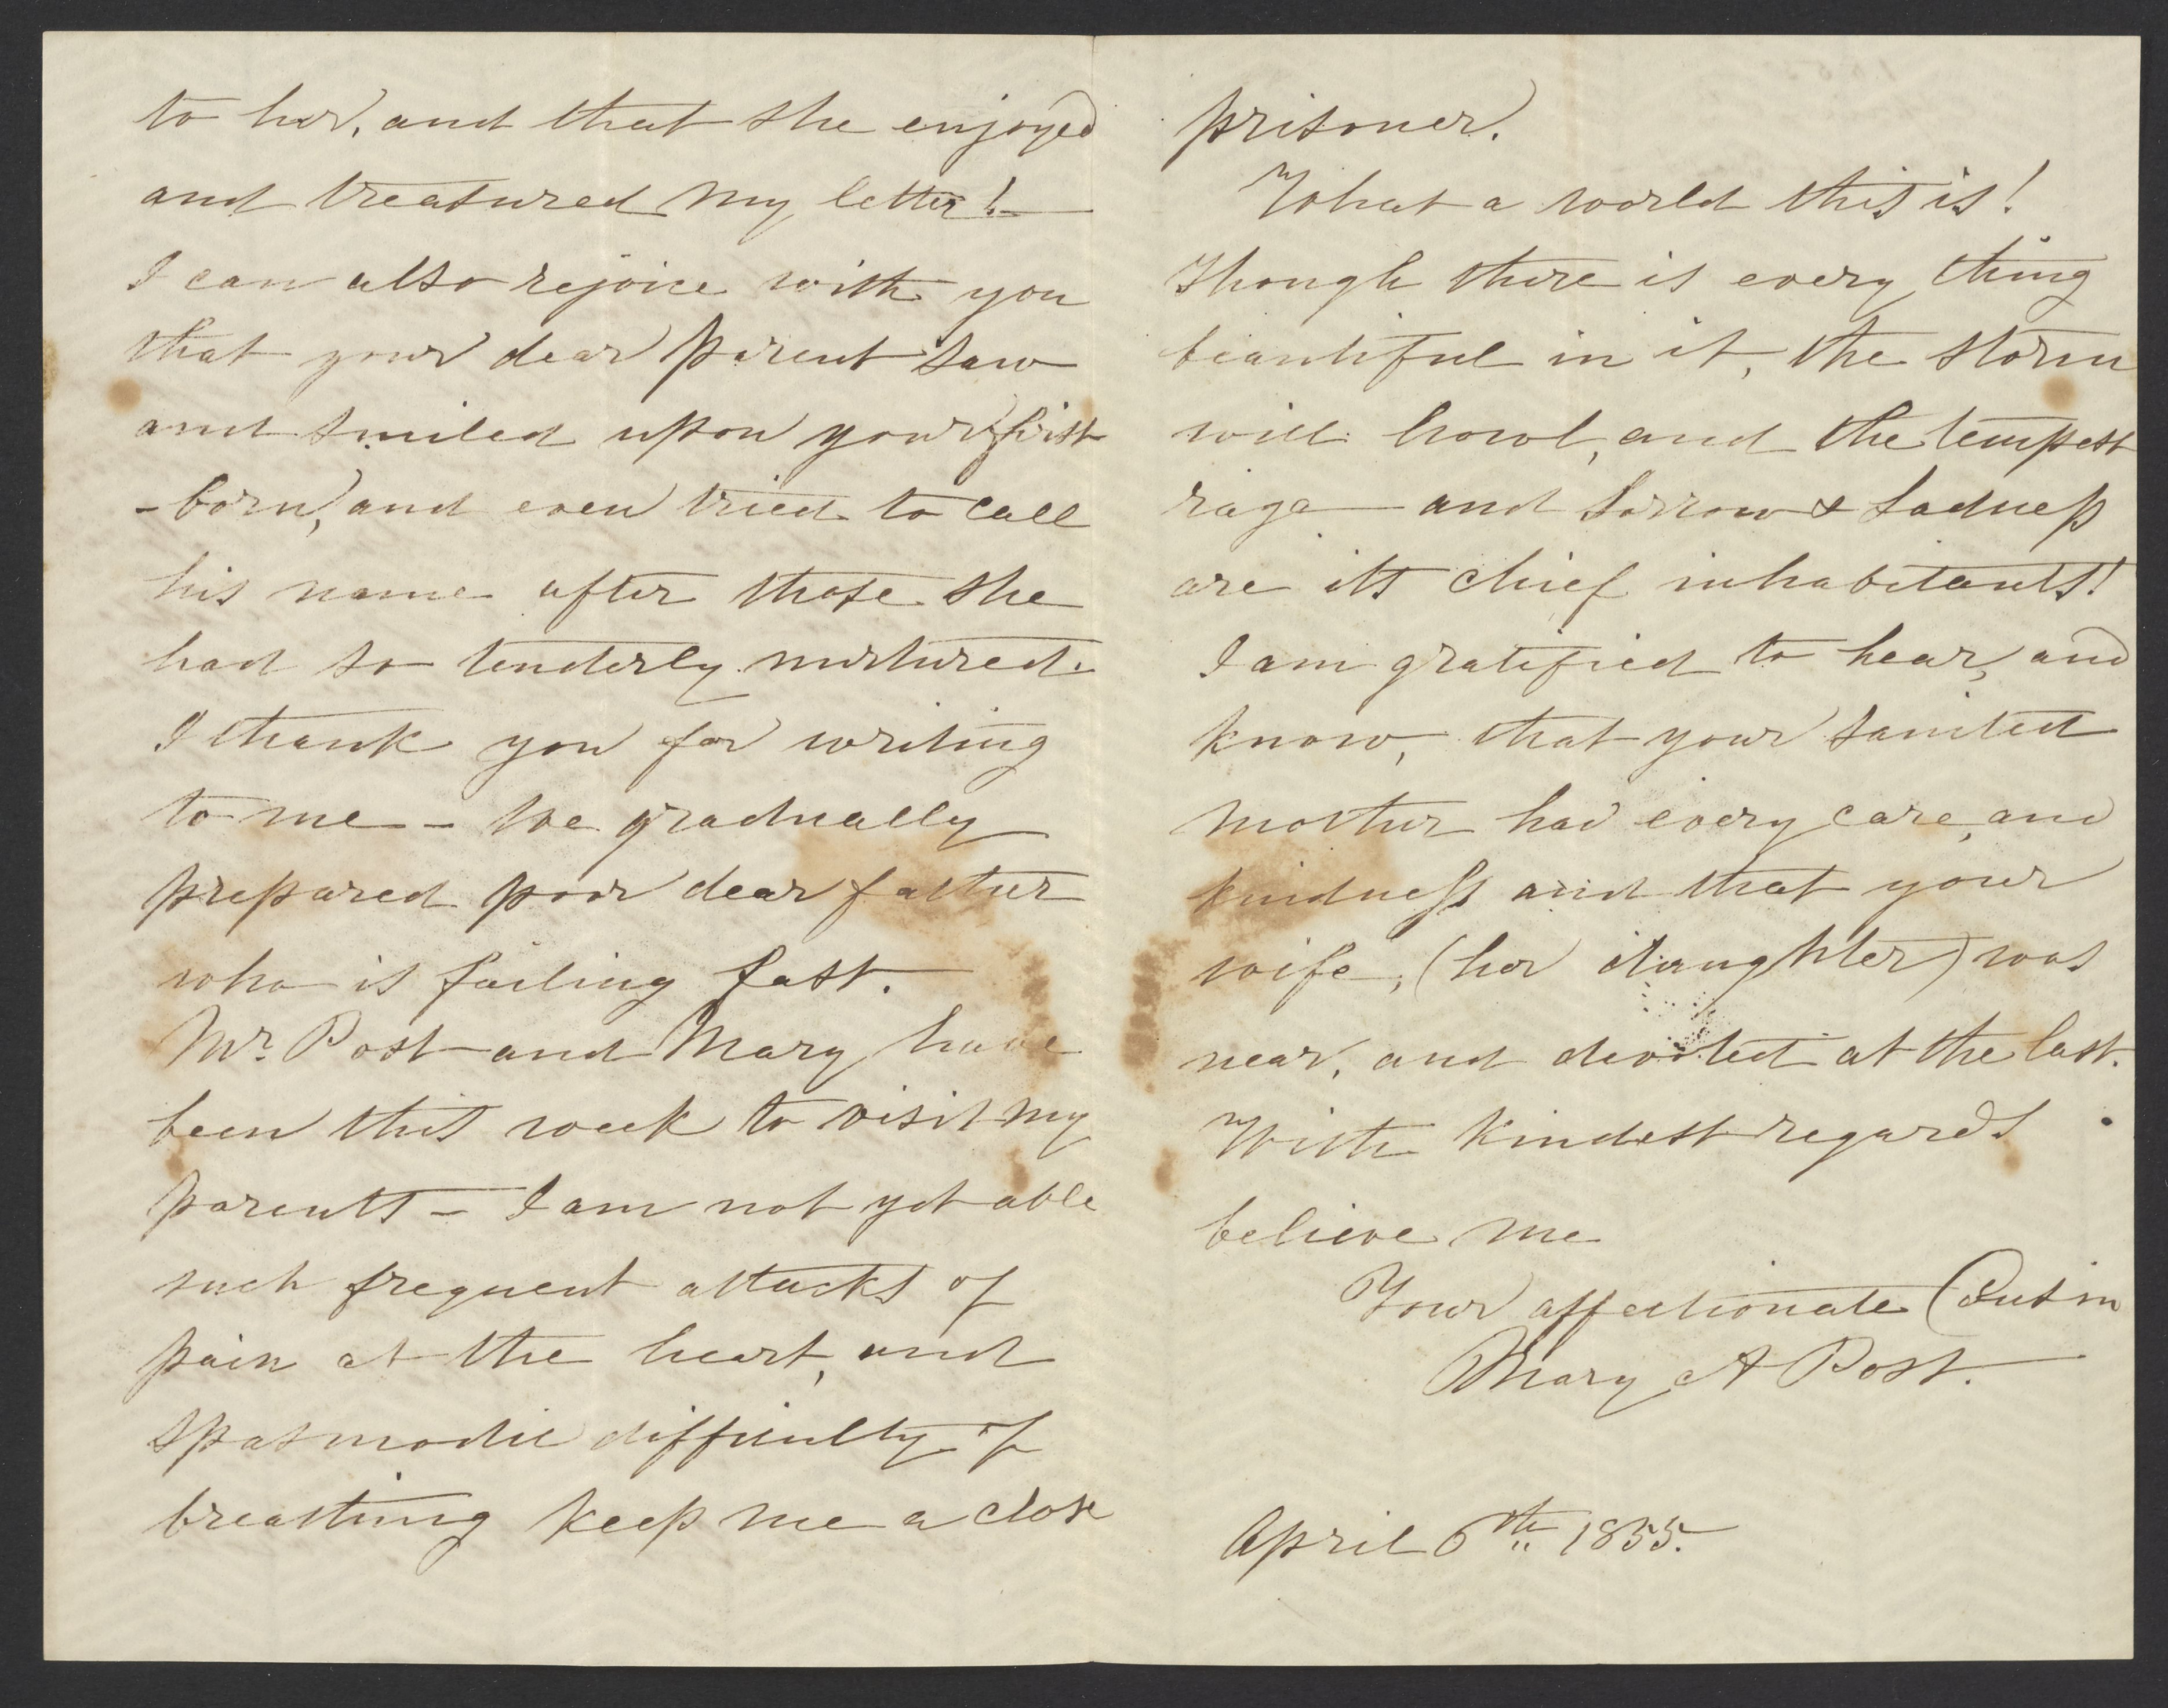 to her, and that she enjoyed
and treasured my letter! —
I can also rejoice with you
that your dear Parent saw
and smiled upon your first
-born, and even tried to call
his name after those she
had so tenderly nurtured.
I thank you for writing
to me – We gradually
prepared poor dear father
who is failing fast.
Mr. Post and Mary have
been this week to visit my
parents – I am not yet able
such frequent attacks of
pain at the heart, and
spasmodic difficulty of
breathing keep me a close
prisoner.
What a world this is!
Though there is every thing
beautiful in it, the storm
will howl, and the tempest
rage — and sorrow & sadness
are its chief inhabitants!
I am gratified to hear, and
know, that your sainted
mother had every care, and
kindness and that your
wife, (her daughter) was
near, and devoted at the last.
With kindest regards
believe me
Your affectionate Cousin
Mary A Post.
April 6th 1855.